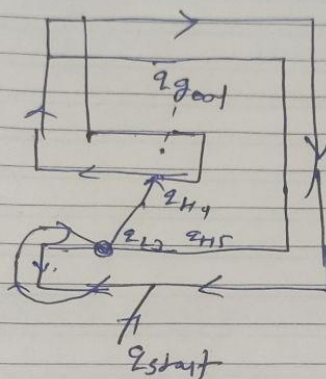 qgoal
qH4
qL2 qH5
qstart